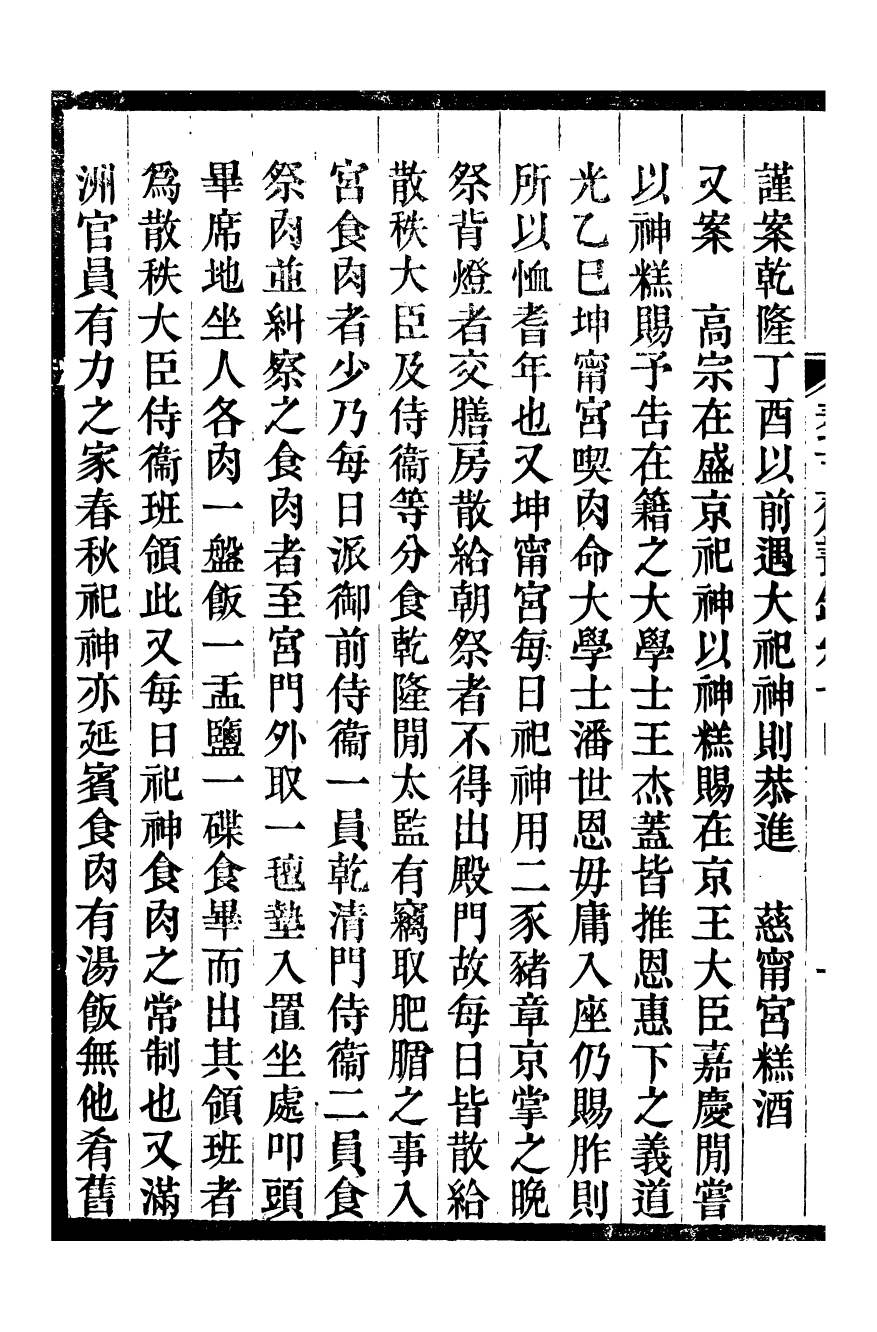 謹案乾隆丁酉以前遇大祀神則恭進　慈甯宮糕酒
又案　高宗在盛京祀神以神糕賜在京王大臣嘉慶閒嘗
以神糕賜予告在籍之大學士王杰蓋皆推恩惠下之義道
光乙巳坤甯宮喫肉命大學士潘世恩毋庸入座仍賜胙則
所以恤耆年也又坤甯宮每日祀神用二豕豬章京掌之晚
祭背燈者交膳房散給朝祭者不得出殿門故每日皆散給
散秩大臣及侍衞等分食乾隆閒太監有竊取肥腯之事入
宮食肉者少乃每日派御前侍衞一員乾清門侍衞二員食
祭肉並糾察之食肉者至宮門外取一氊墊入置坐處叩頭
畢席地坐人各肉一盤飯一盂鹽一碟食畢而出其領班者
爲散秩大臣侍衞班領此又每日祀神食肉之常制也又滿
洲官員有力之家春秋祀神亦延賓食肉有湯飯無他肴舊